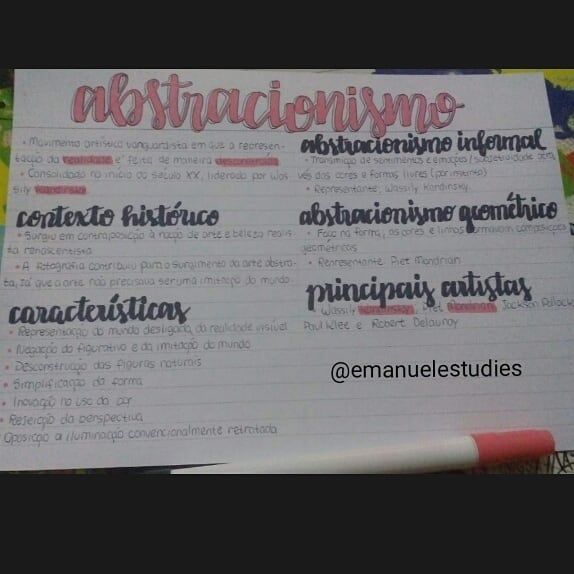 abstracionismo
• Movimento artístico vanguardista em que a represen-
tação da realidade é feita de maneira desconstruída
• Consolidado no início do século XX, liderado por Was-
sily Kandinsky.
contexto histórico
• Surgiu em contraposição à noção de arte e beleza realis
ta renascentista
• A fotografia contribuiu para o surgimento da arte abstra-
ta, já que a arte não precisava ser uma imitação do mundo
características
• Representação do mundo desligada da realidade visível
• Negação do figurativo e da imitação do mundo
• Desconstrução das figuras naturais
• Simplificação da forma
• Inovação no uso da cor
• Rejeição da perspectiva
Oposição a iluminação convencionalmente retratada
abstracionismo informal
• Transmissão de sentimentos e emoções/subjetividade atra
vés das cores e formas livres (por instinto)
• Representante: Wassily Kandinsky.
abstracionismo geométrico
• Foco na forma, as cores e linhas formavam composições
geométricas
• Representante Piet Mondrian
principais artistas
• Wassily Kandinsky, Piet Mondrian, Jackson Pollock
Paul Klee e Robert Delaunay
@emanuelestudies